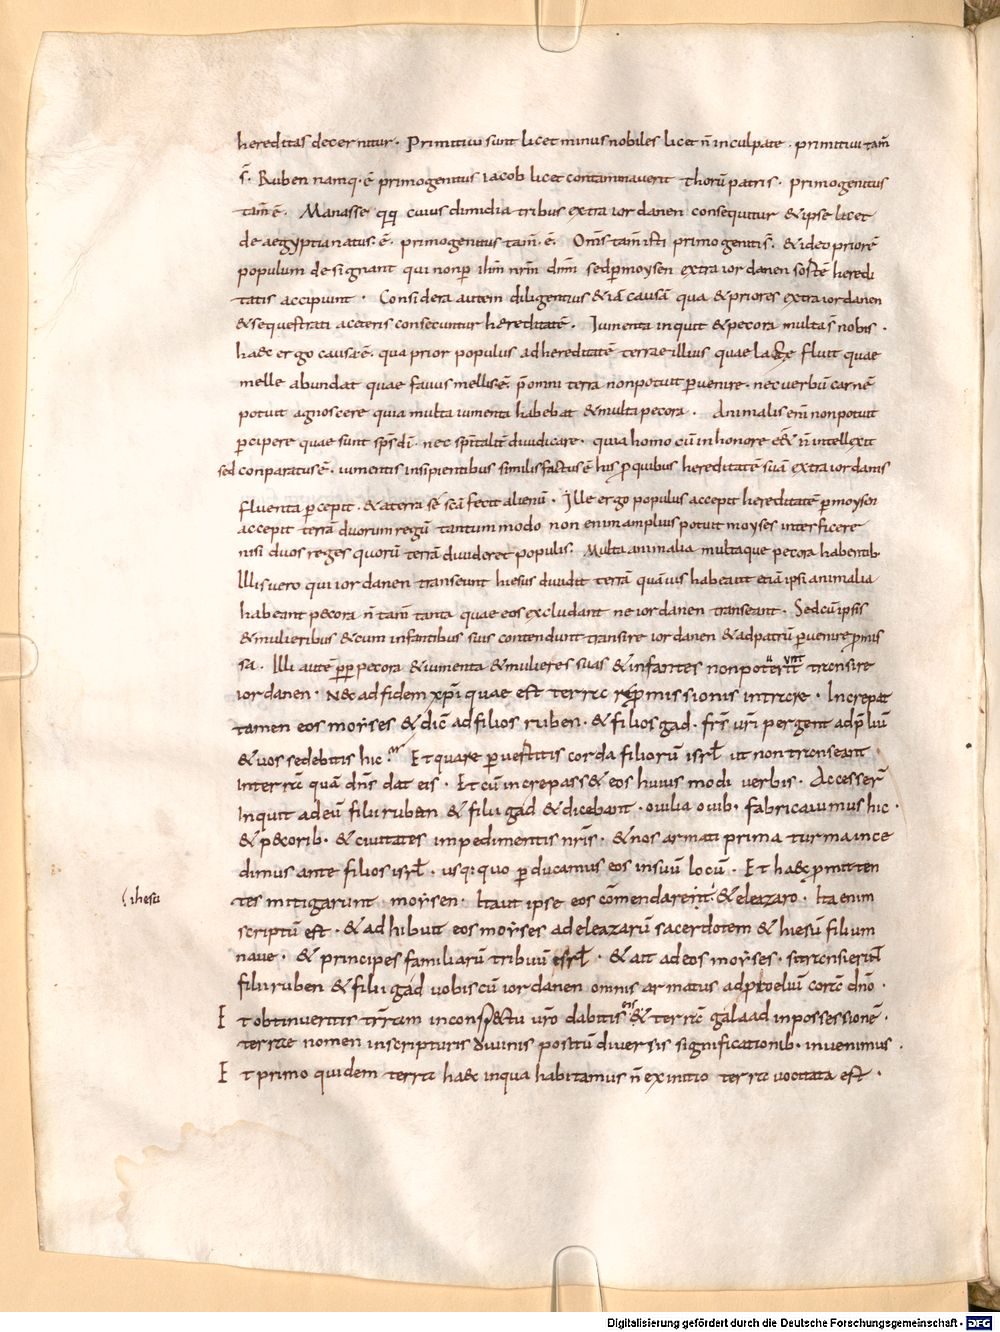 hereditas decernitur. Primitiui sunt licet minus nobiles licet n̄ inculpate. primitiui tam̄
s̄. Ruben namq. ē primogenitus iacob licet contaminauerit thorū patris. primogenitus
tam̄ ē. Manasse qq cuius dimidia tribus extra iordanen consequitur & ipse licet
de aegyptia natus. ē. primogenitus tam̄. ē. Om̄s tam̄ isti primogeniti s̄. & ideo priorē
populum designant qui non p ih̄m nr̄m dn̄m sed p moysen extra iordanen sortē heredi
tatis accipiunt. Considera autem diligentius & iā causā qua & priores extra iordanen
& sequestrati a ceteris consecuntur hereditatē. Iumenta inquit & pecora multa s̄ nobis.
haec ergo causa ē. qua prior populus ad hereditatē terrae illius quae lacte fluit quae
melle abundat quae fauus mellis ē p̄ omni terra non potuit puenire. nec uerbū carnē
potuit agnoscere quia multa iumenta habebat & multa pecora. Animalis enī non potuit
pcipere quae sunt sp̄s dī. nec sp̄italit̄ diiudicare. quia homo cū in honore e&̄ n̄ intellexit
sed conparatus ē. iumentis insipientibus similis factus ē his p quibus hereditatē suā extra iordanis
fluenta pcepit. & a terra se scā fecit alienū. Ille ergo populus accepit hereditatē p moysen
accepit terrā duorum regū tantummodo non enim amplius potuit moyses interficere
nisi duos reges quorū terrā diuideret populis. Multa animalia multaque pecora habentib.
Illis uero qui iordanen transeunt hiesus diuidit terrā quāuis habeant etiā ipsi animalia
habeant pecora n̄ tam̄ tanta quae eos excludant ne iordanen transeant. Sed cū ipsis
& mulieribus & cum infantibus suis contendunt transire iordanen & ad patriā puenire pmis
sa. Illi autē pp pecora & iumenta & mulieres suas & infantes non poterīt transire
iordanen. Nec ad fidem xpi quae est terra repromissionis intrare. Increpat
tamen eos moyses & dic̄ ad filios ruben. & filios gad. frs̄ ur̄i pergent ad p̄liū
& uos sedebitis hic. Et quare peruertitis corda filiorū isrl̄ ut non transeant
In terrā quā dn̄s dat eis. Et cū increpass& eos huius modi uerbis. Accesser̄
Inquit ad eū filii ruben & filii gad & dicebant. ouilia ouib. fabricauimus hic.
& pecorib. & ciuitates impedimentis nr̄is. & nos armati prima turma ince
dimus ante filios isrl̄. usq: quo p ducamus eos in suū locū. Et haec pmitten
tes mitigarunt moysen. Ita ut ipse eos com̄endaret & eleazaro. Ita enim
ihesu
scriptū est. & adhibuit eos moyses ad eleazarū sacerdotem & hiesū filium
naue. & principes familiarū tribuū isrl̄. & ait ad eos moyses. si transierint̄
filii ruben & filii gad uobiscū iordanen omnis armatus ad p̄lium corā dn̄o.
Et obtinueritis terram in conspectu ur̄o dabitis eis & terrā galaad in possessionē.
terrae nomen in scripturis diuinis positū diuersis significationib. inuenimus.
Et primo quidem terra haec in qua habitamus n̄ ex initio terra uocitata est.